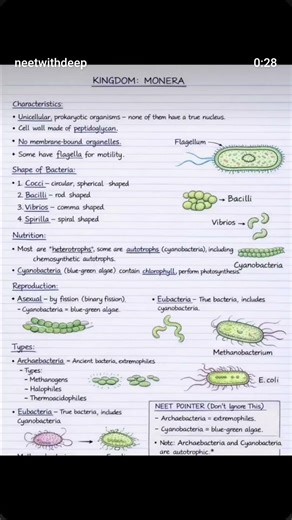 neetwithdeep
0:28
KINGDOM: MONERA
Characteristics:
• Unicellular, prokaryotic organisms – none of them have a true nucleus.
• Cell wall made of peptidoglycan.
• No membrane-bound organelles.
• Some have flagella for motility.
Flagellum
Shape of Bacteria:
• 1. Cocci – circular, spherical shaped
2. Bacilli – rod shaped
3. Vibrios – comma shaped
4 Spirilla – spiral shaped
Bacilli
Vibrios
Nutrition:
• Most are "heterotrophs", some are autotrophs (cyanobacteria), including
chemosynthetic autotrophs.
• Cyanobacteria (blue-green algae) contain chlorophyll, perform photosynthesis
Cyanobacteria
Reproduction:
• Asexual – by fission (binary fission).
– Cyanobacteria = blue-green algae.
• Eubacteria – True bacteria, includes
cyanobacteria.
Methanobacterium
Types:
• Archaebacteria = Ancient bacteria, extremophiles
- Types:
– Methanogens
– Halophiles
– Thermoacidophiles
E.coli
• Eubacteria – True bacteria, includes
Cyanobacteria
NEET POINTER (Don't Ignore This)
– Archaebacteria = extremophiles.
– Cyanobacteria = blue-green algae.
• Note: Archaebacteria and Cyanobacteria
are autotrophic.*